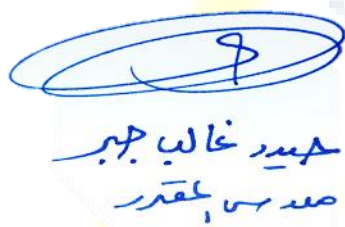 حيدر غالب جبر
مدرس المقرر